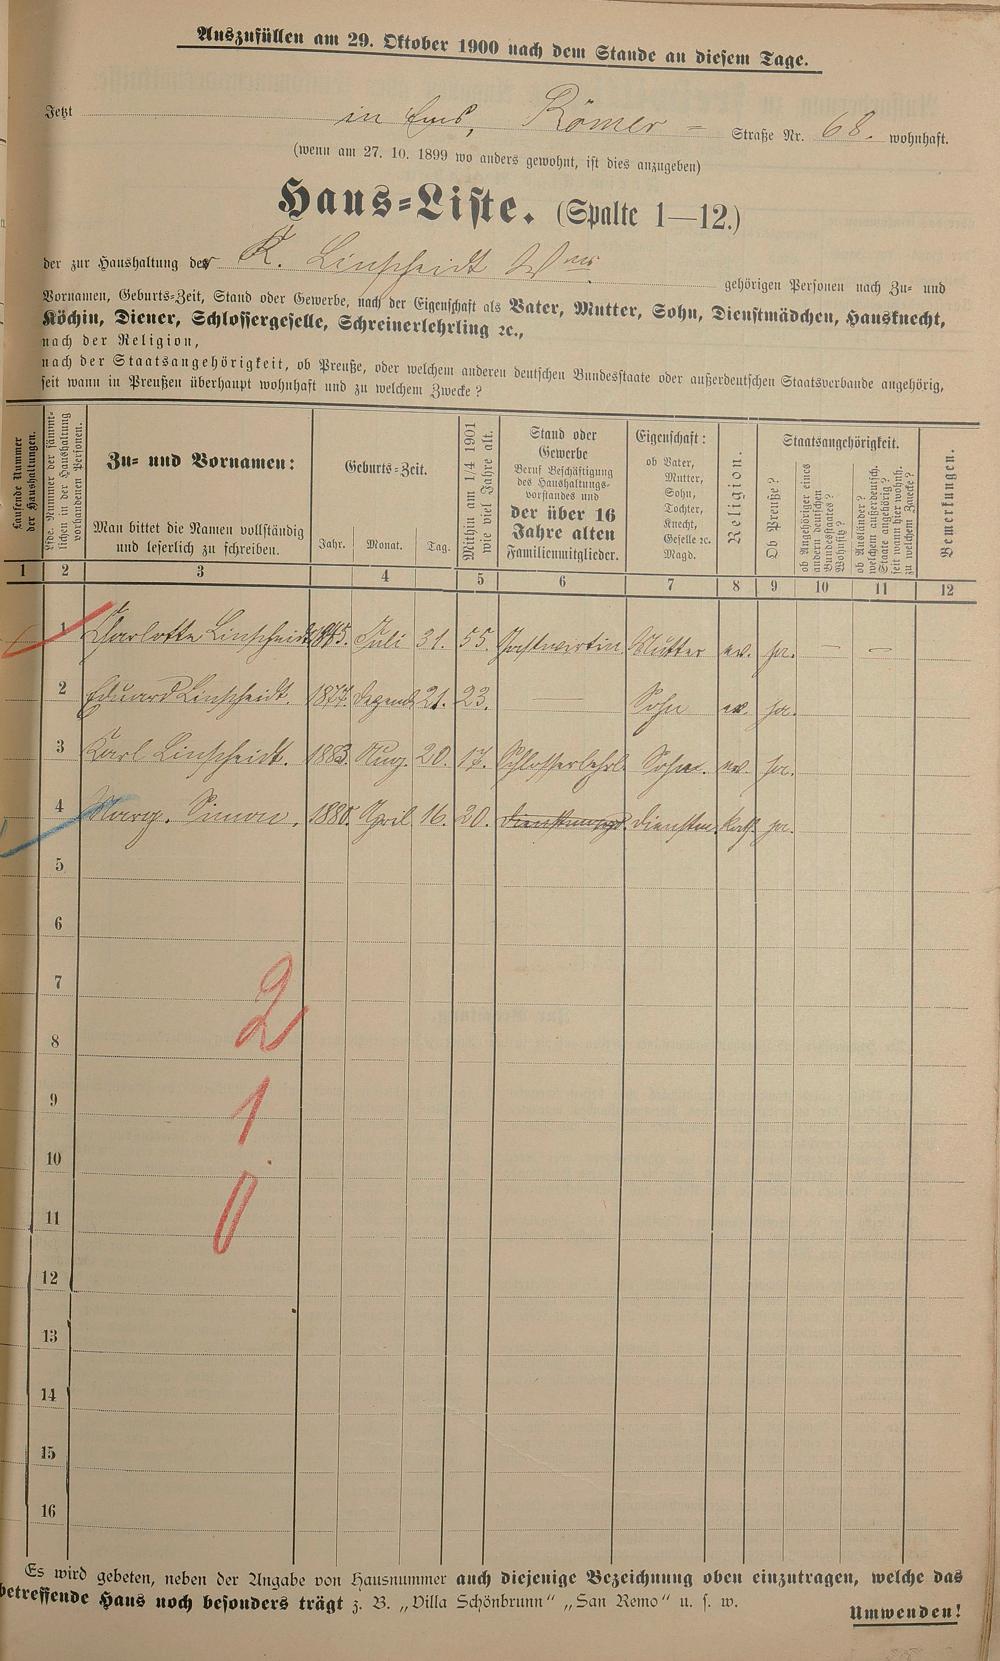 Auszufüllen am 29. Oktober 1900 nach dem Stande an diesem Tage.
Jetzt in Ems, Römer = Straße Nr. 68. wohnhaft.
(wenn am 27. 10. 1899 wo anders gewohnt, ist dies anzugeben)
Haus=Liste. (Spalte 1—12.)
der zur Haushaltung der K. Linscheidt Wwe gehörigen Personen nach Zu- und
Vornamen, Geburts-Zeit, Stand oder Gewerbe, nach der Eigenschaft als Vater, Mutter, Sohn, Dienstmädchen, Hausknecht,
Köchin, Diener, Schlossergeselle, Schreinerlehrling ec.,
nach der Religion,
nach der Staatsangehörigkeit, ob Preuße, oder welchem anderen deutschen Bundesstaate oder außerdeutschen Staatsverbande angehörig,
seit wann in Preußen überhaupt wohnhaft und zu welchem Zwecke?
Laufende Nummer
der Haushaltungen.
Lfde. Nummer der sämmt-
lichen in der Haushaltung
vorhandenen Personen.
Zu- und Vornamen:
Man bittet die Namen vollständig
und leserlich zu schreiben.
Geburts-Zeit.
Jahr. Monat. Tag.
Mithin am 1/4 1901
wie viel Jahre alt.
Stand oder
Gewerbe
Beruf Beschäftigung
des Haushaltungs-
vorstandes und
der über 16
Jahre alten
Familienmitglieder.
Eigenschaft:
ob Vater,
Mutter,
Sohn,
Tochter,
Knecht,
Geselle ec.
Magd.
Religion.
Staatsangehörigkeit.
Ob Preuße?
ob Angehöriger eines
andern deutschen
Bundesstaates?
Wohnsitz?
ob Ausländer?
welchem außerdeutsch.
Staate angehörig?
seit wann hier wohnh.
zu welchem Zwecke?
Bemerkungen.
1 2 3 4 5 6 7 8 9 10 11 12
1 Charlotte Linscheidt 1845. Juli 31. 55. Gastwirtin. Mutter ev. ja. — —
2 Eduard Linscheidt. 1877. Dezemb. 21. 23. — Sohn ev. ja.
3 Karl Linscheidt. 1883. Aug. 20. 17. Schlosserlehrl. Sohn. ev. ja.
4 Marg. Simon. 1880. April 16. 20. Dienstmagd. Dienstm. kath. ja.
5
6
7
2
8
9
1
10
11
0
12
13
14
15
16
Es wird gebeten, neben der Angabe von Hausnummer auch diejenige Bezeichnung oben einzutragen, welche das
betreffende Haus noch besonders trägt z. B. „Villa Schönbrunn“ „San Remo“ u. s. w.
Umwenden!